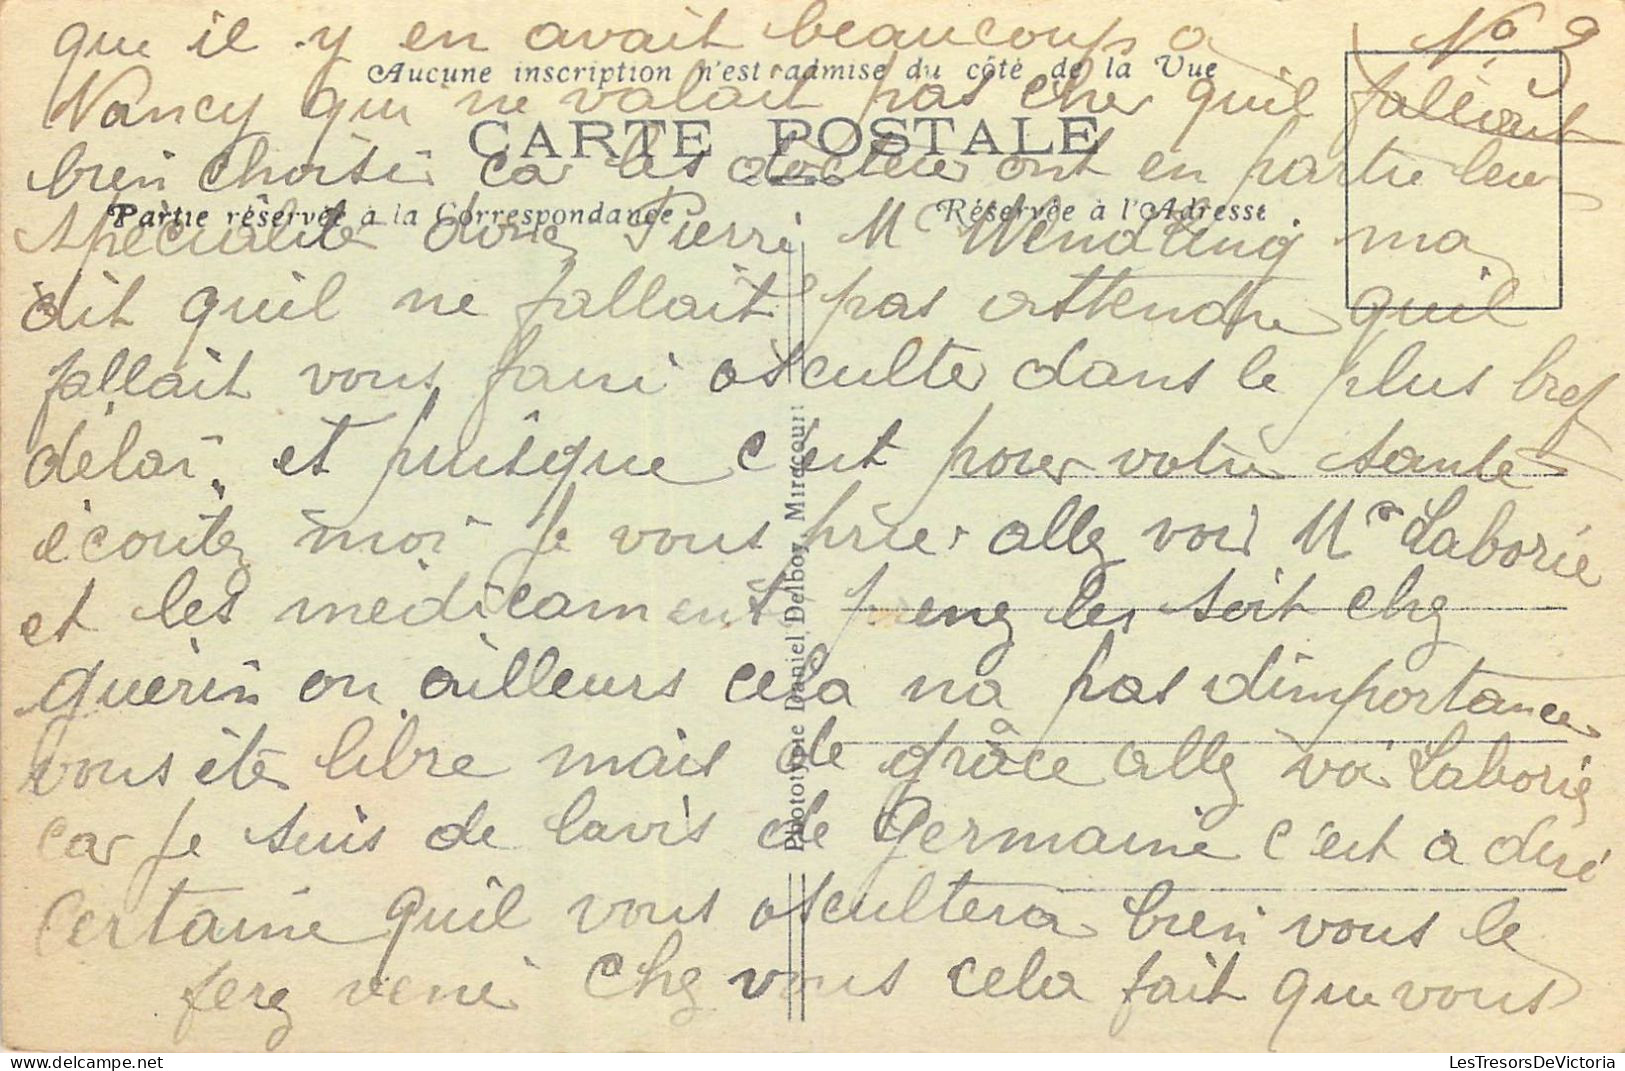 No 9
que il y en avait beaucoup a
Aucune inscription n'est admise du côté de la Vue
Nancy qui ne valait pas cher quil fallait
CARTE POSTALE
bien choisir car les docteur ont en partie leur
Partie réservée à la Correspondance
Réservée à l'Adresse
spécialité Pierre Mr Wendling ma
dit quil ne fallait pas attendre quil
fallait vous faire osculter dans le plus bref
délai, et puisque c'est pour votre santé
écoutez moi je vous prie allez voir Mr Laborie
et les médicaments prenez les soit chez
guérin ou ailleurs cela na pas dimportance
vous êtes libre mais de grâce allez voir Laborie
car je suis de lavis de Germaine c'est a dire
certaine quil vous oscultera bien vous le
ferez venir chez vous cela fait que vous
Phototypie Daniel Delboy, Mirecourt
LesTresorsDeVictoria